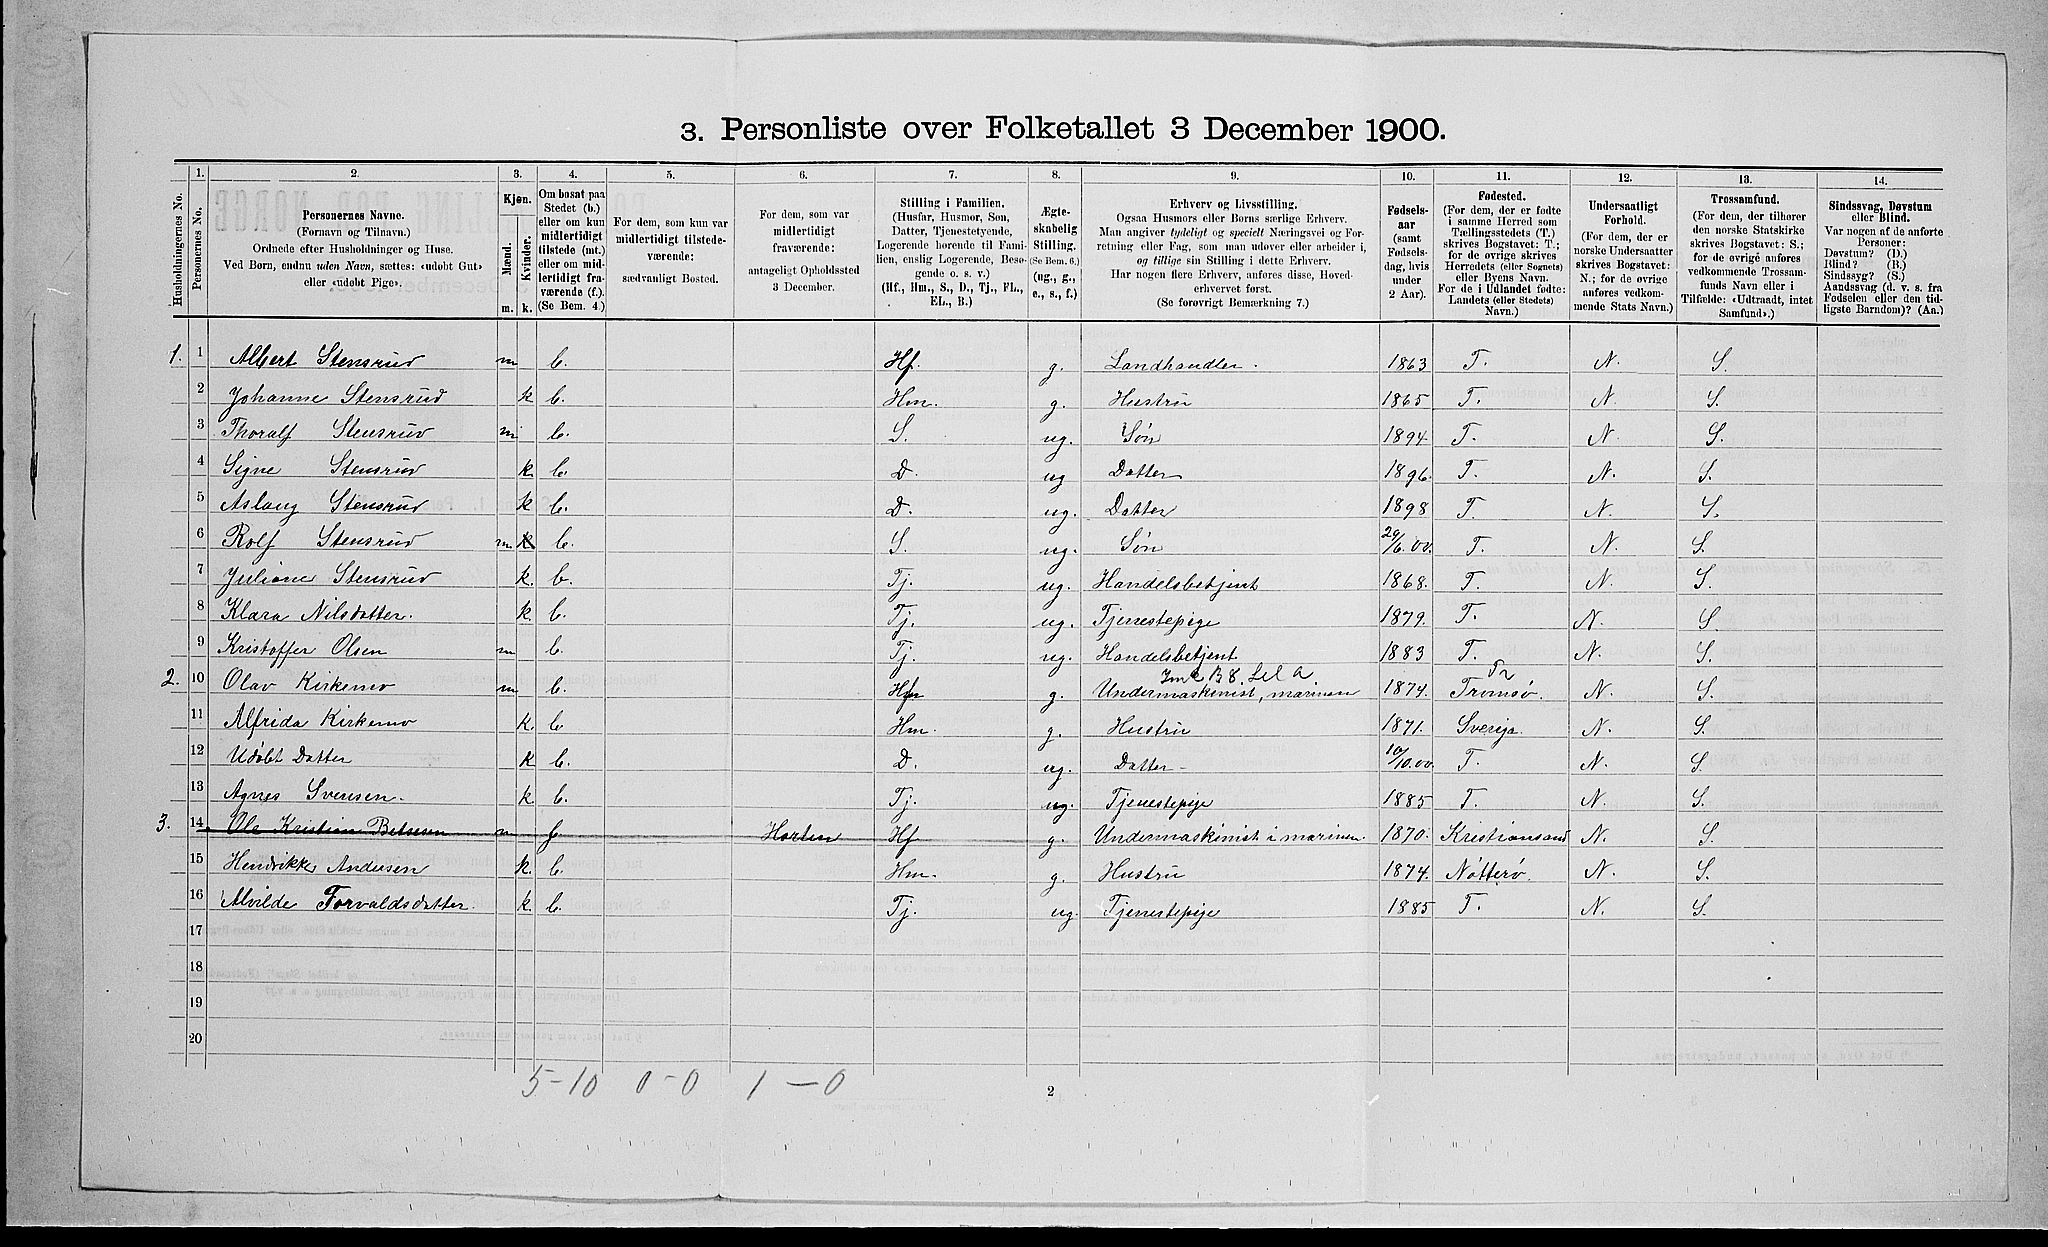 3. Personliste over Folketallet 3 December 1900.
Husholdningernes No.
1.
Personernes No.
2.
Personernes Navne.
(Fornavn og Tilnavn.)
Ordnede efter Husholdninger og Huse.
Ved Børn, endnu uden Navn, sættes: «udøbt Gut»
eller «udøbt Pige».
3.
Kjøn.
Mænd.
Kvinder.
m. k.
4.
Om bosat paa
Stedet (b.)
eller om kun
midlertidigt
tilstede (mt.)
eller om mid-
lertidigt fra-
værende (f.).
(Se Bem. 4.)
5.
For dem, som kun var
midlertidigt tilstede-
værende:
sædvanligt Bosted.
6.
For dem, som var
midlertidigt
fraværende:
antageligt Opholdssted
3 December.
7.
Stilling i Familien.
(Husfar, Husmor, Søn,
Datter, Tjenestetyende,
Logerende hørende til Fami-
lien, enslig Logerende, Besø-
gende o. s. v.)
(Hf., Hm., S., D., Tj., FL.,
EL., B.)
8.
Ægte-
skabelig
Stilling.
(Se Bem. 6.)
(ug., g.,
e., s., f.)
9.
Erhverv og Livsstilling.
Ogsaa Husmors eller Børns særlige Erhverv.
Man angiver tydeligt og specielt Næringsvei og For-
retning eller Fag, som man udøver eller arbeider i,
og tillige sin Stilling i dette Erhverv.
Har nogen flere Erhverv, anføres disse, Hoved-
erhvervet først.
(Se forøvrigt Bemærkning 7.)
10.
Fødsels-
aar
(samt
Fødsels-
dag, hvis
under
2 Aar).
11.
Fødested.
(For dem, der er fødte
i samme Herred som
Tællingsstedets (T.)
skrives Bogstavet: T.;
for de øvrige skrives
Herredets (eller Sognets)
eller Byens Navn.
For de i Udlandet fødte:
Landets (eller Stedets)
Navn.)
12.
Undersaatligt
Forhold.
(For dem, der er
norske Undersaatter
skrives Bogstavet:
N.; for de øvrige
anføres vedkom-
mende Stats Navn.)
13.
Trossamfund.
(For dem, der tilhører
den norske Statskirke
skrives Bogstavet: S.;
for de øvrige anføres
vedkommende Trossam-
funds Navn eller i
Tilfælde: «Udtraadt, intet
Samfund».)
14.
Sindssvag, Døvstum
eller Blind.
Var nogen af de anførte
Personer:
Døvstum? (D.)
Blind? (B.)
Sindssyg? (S.)
Aandssvag (d. v. s. fra
Fødselen eller den tid-
ligste Barndom)? (Aa.)
1. 1 Albert Stensrud m b. Hf. g. Landhandler. 1863 T. N. S.
2 Johanne Stensrud k b. Hm. g. Hustru 1865 T. N. S.
3 Thoralf Stensrud m b. S. ug. Søn 1894. T. N. S.
4 Signe Stensrud k. b. D. ug Datter 1896. T. N. S.
5 Aslaug Stensrud k b. D. ug. Datter 1898 T. N. S.
6 Rolf Stensrud m k b. S. ug. Søn 29/6.00. T. N. S.
7 Juliane Stensrud k. b. Tj. ug. Handelsbetjent 1868. T. N. S.
8 Klara Nilsdatter. k b. Tj. ug. Tjenestepige 1879. T. N. S.
9 Kristoffer Olsen m b. Tj. ug. Handelsbetjent 1883 T. N. S.
2. 10 Olav Kirkemo m b. Hf g. Undermaskinist, marinen 1874. Tromsø. N. S.
11 Alfrida Kirkemo k. b. Hm. g. Hustru 1871. Sverige. N. S.
12 Udøbt Datter k b. D. ug. Datter – 10/10.00. T. N. S.
13 Agnes Svensen. k b. Tj. ug. Tjenestepige 1885 T. N. S.
3. 14 Ole Kristian m f Horten Hf g. Undermaskinist i marinen. 1870. Kristiansand N. S.
15 Hendrikke Andersen k. b. Hm. g. Hustru 1874. Nøtterø. N. S.
16 Alvilde Torvaldsdatter. k. b. Tj. ug. Tjenestepige 1885 T. N. S.
17
18
19
20
5-10 0-0 1-0
2